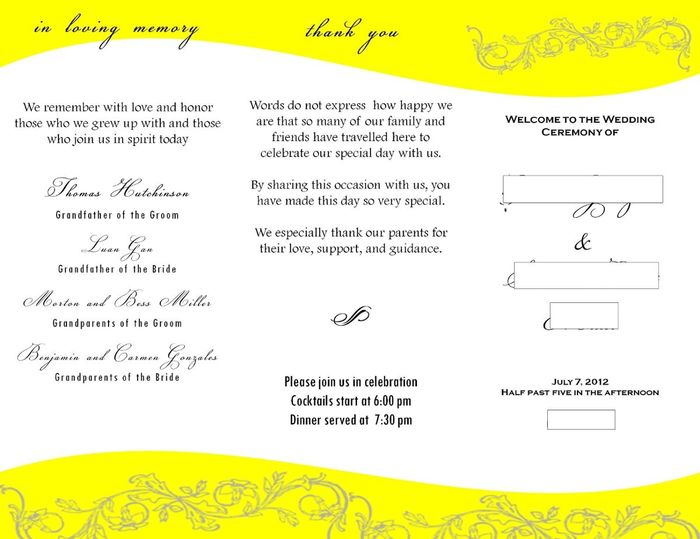 in loving memory
We remember with love and honor
those who we grew up with and those
who join us in spirit today
Thomas Hutchinson
Grandfather of the Groom
Luan Gan
Grandfather of the Bride
Morton and Bess Miller
Grandparents of the Groom
Benjamin and Carmen Gonzales
Grandparents of the Bride
thank you
Words do not express how happy we
are that so many of our family and
friends have travelled here to
celebrate our special day with us.
By sharing this occasion with us, you
have made this day so very special.
We especially thank our parents for
their love, support, and guidance.
Please join us in celebration
Cocktails start at 6:00 pm
Dinner served at 7:30 pm
Welcome to the Wedding
Ceremony of
&
July 7, 2012
Half past five in the afternoon